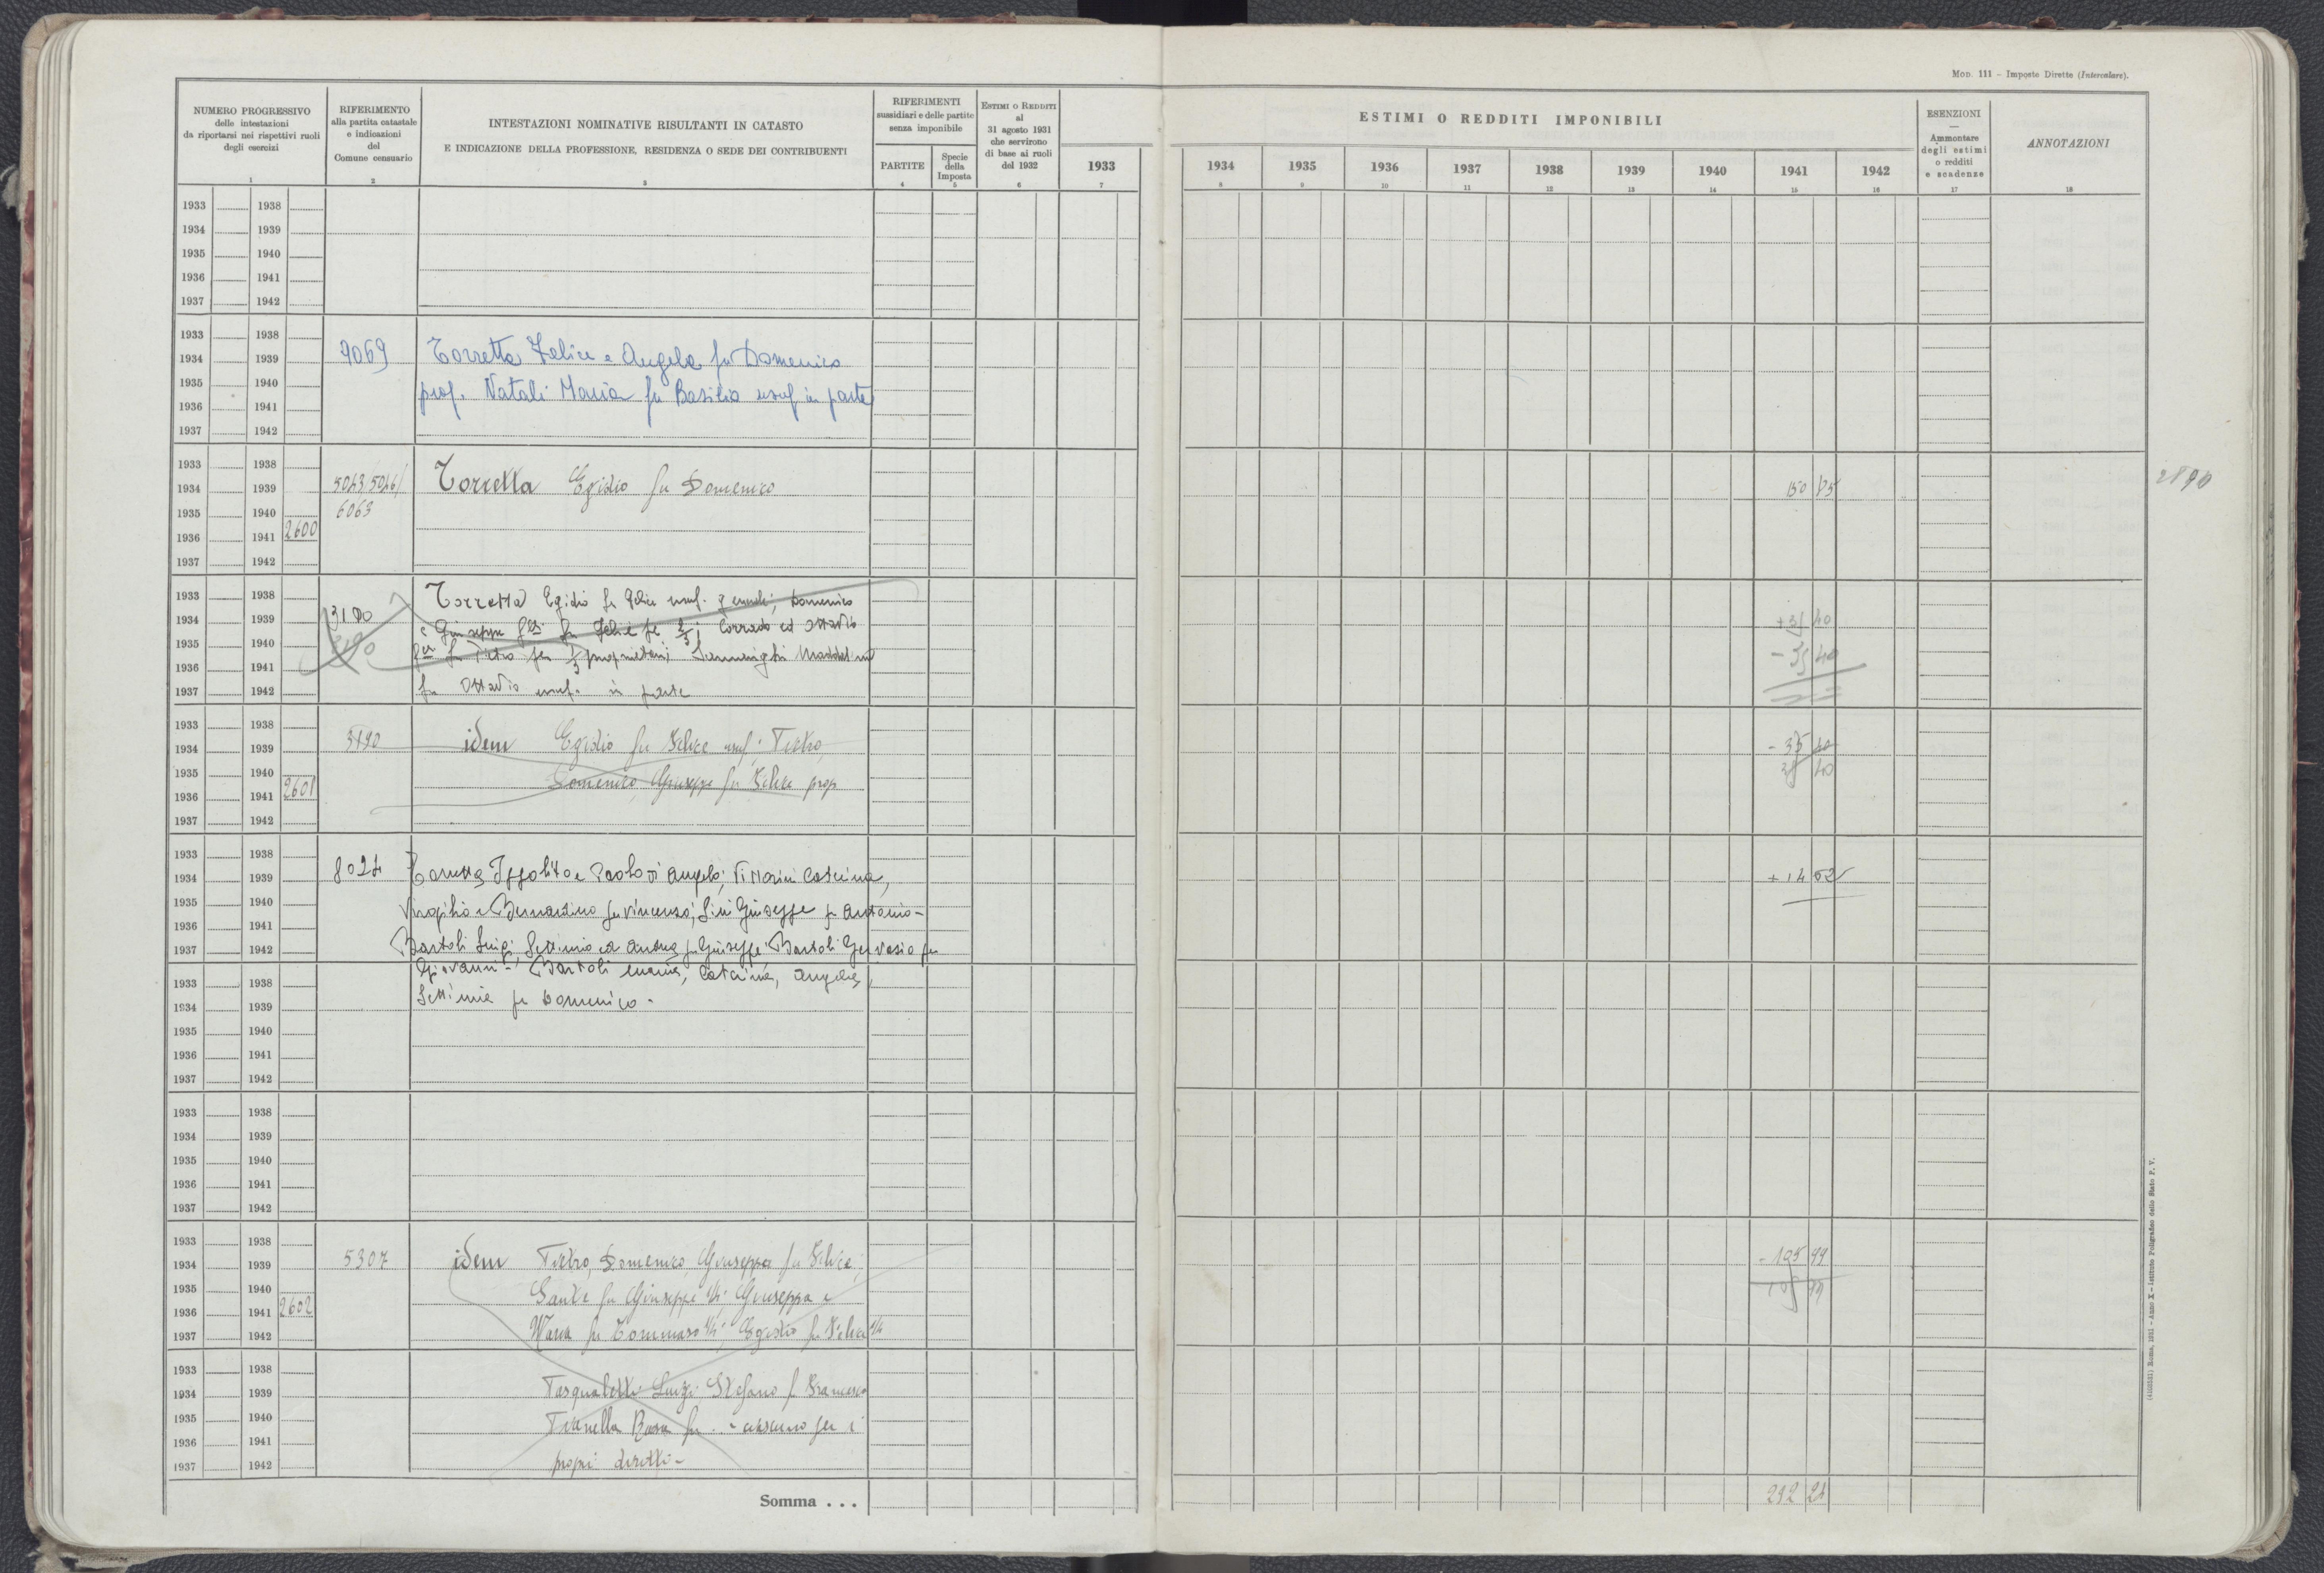 Mod. 111 – Imposte Dirette (Intercalare).
NUMERO PROGRESSIVO
delle intestazioni
da riportarsi nei rispettivi ruoli
degli esercizi
1
RIFERIMENTO
alla partita catastale
e indicazioni
del
Comune censuario
2
INTESTAZIONI NOMINATIVE RISULTANTI IN CATASTO
E INDICAZIONE DELLA PROFESSIONE, RESIDENZA O SEDE DEI CONTRIBUENTI
3
RIFERIMENTI
sussidiari e delle partite
senza imponibile
PARTITE
4
Specie
della
Imposta
5
ESTIMI O REDDITI
al
31 agosto 1931
che servirono
di base ai ruoli
del 1932
6
1933
7
ESTIMI O REDDITI IMPONIBILI
1934 1935 1936 1937 1938 1939 1940 1941 1942
8 9 10 11 12 13 14 15 16
ESENZIONI
—
Ammontare
degli estimi
o redditi
e scadenze
17
ANNOTAZIONI
18
1933 1938
1934 1939
1935 1940
1936 1941
1937 1942
1933 1938
1934 1939 9069 Torretta Felice e Angela fu Domenico
1935 1940 prof. Natali Maria fu Basilio usuf in parte
1936 1941
1937 1942
1933 1938
1934 1939 5043/5046/ Torretta Egidio fu Domenico 150 85
1935 1940 6063
1936 1941 2600
1937 1942
1933 1938 Torretta Egidio fu Felice usuf. generale; Domenico
1934 1939 3190 e Giuseppe fu Felice per 2/3; Corrado ed Ottavio
1935 1940 3190 fu Pietro per 1/3 proprietari
1936 1941 - 35 40
1937 1942 fu Ottavio usuf. in parte
1933 1938
1934 1939 3190 idem Egidio fu Felice usuf; Pietro, - 35 40
1935 1940 35 40
1936 1941 2601 Domenico, Giuseppe fu Felice prop
1937 1942
1933 1938
1934 1939 8024 Torretta Ippolito e Paolo di Angelo; Vittorini Caterina, + 14 02
1935 1940 Virgilio e Bernardino fu Vincenzo; Lini Giuseppe fu Antonio -
1936 1941
1937 1942 Bartoli Luigi, Settimio ed Andrea fu Giuseppe; Bartoli Gervasio fu
Giovanni - Bartoli Maria, Caterina, Angela,
1933 1938
1934 1939 Settimia fu Domenico -
1935 1940
1936 1941
1937 1942
1933 1938
1934 1939
1935 1940
1936 1941
1937 1942
1933 1938
1934 1939 5307 idem Pietro, Domenico, Giuseppe fu Felice; - 105 99
1935 1940 Sante fu Giuseppe 1/4; Giuseppa e
1936 1941 2602
1937 1942 Maria fu Tommaso 1/4; Egidio fu Felice 1/4
1933 1938
1934 1939 Pasqualetti Luigi Stefano fu Francesco
1935 1940 Pianella Rosa fu .. - ciascuno per i
1936 1941
1937 1942 propri diritti -
Somma . . . 292 24
(4102531) Roma, 1931 – Anno X – Istituto Poligrafico dello Stato P. V.